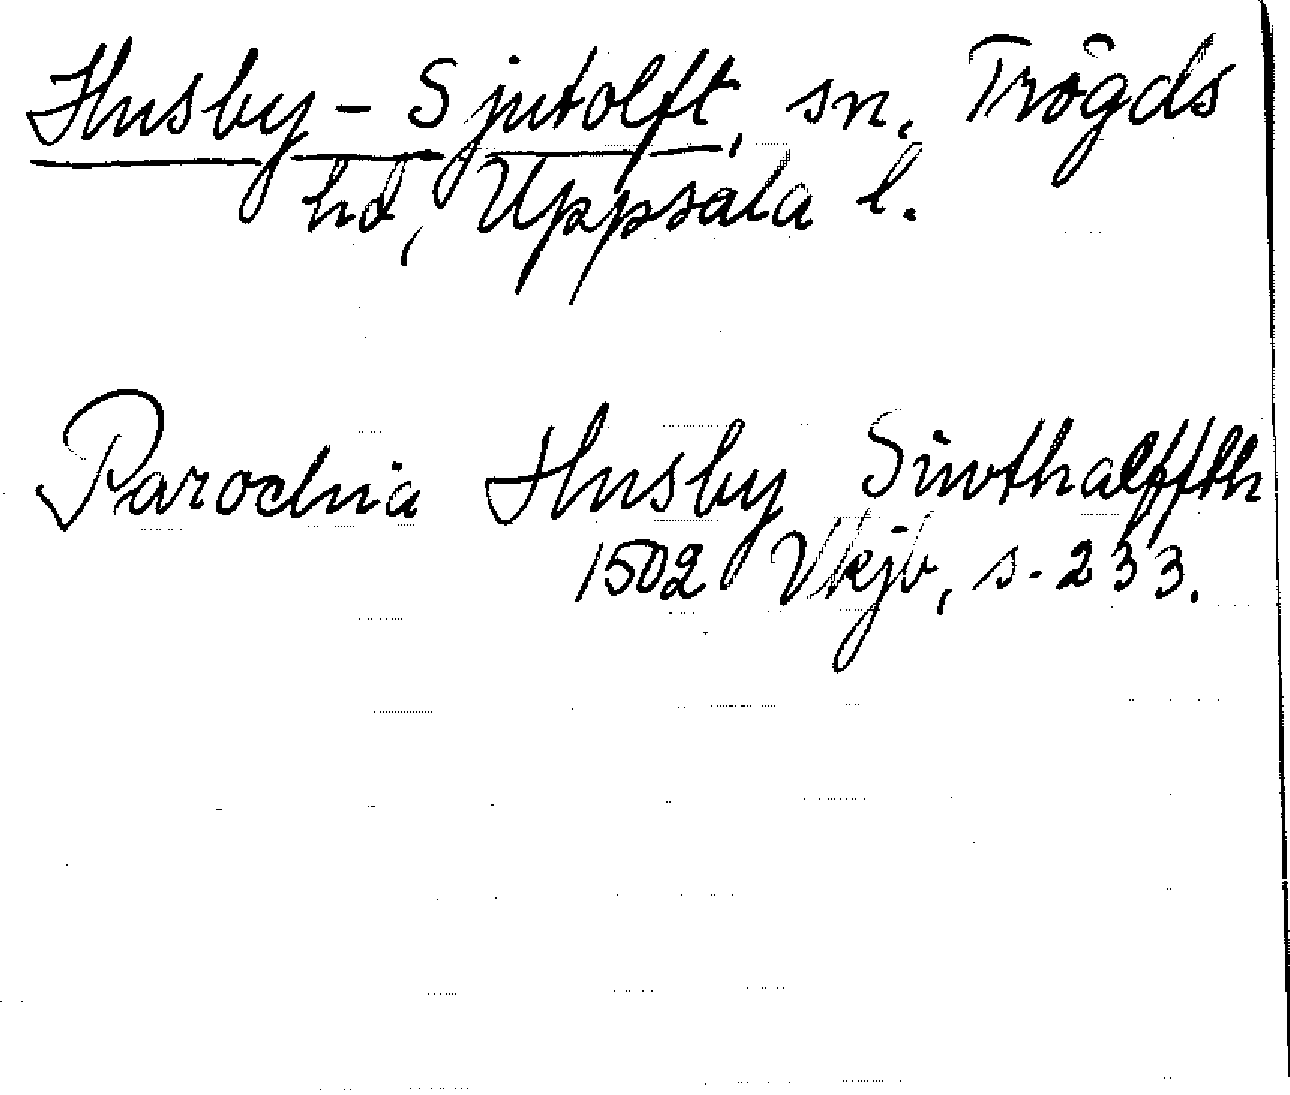 Husby-Sjutolft, sn. Trögds
hd, Uppsala l.
Parochia Husby Siwthalffth
1502 Vkjb, s. 233.